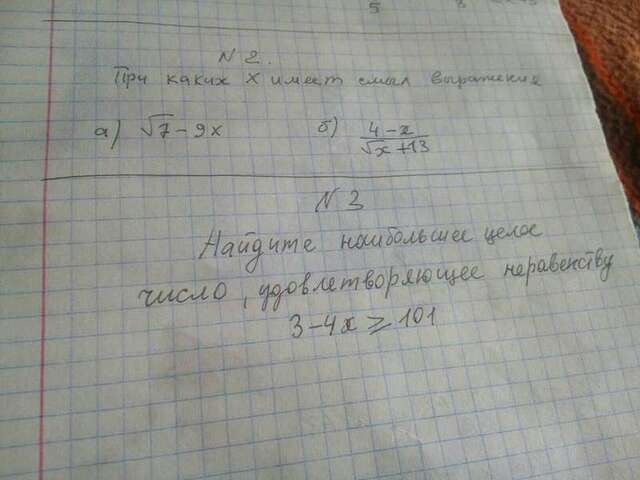 5
N 2.
При каких х имеет смысл выражения
а) √7-9х б) 4-х/√х+13
N 3
Найдите наибольшее целое
число, удовлетворяющее неравенству
3-4х ≥ 101